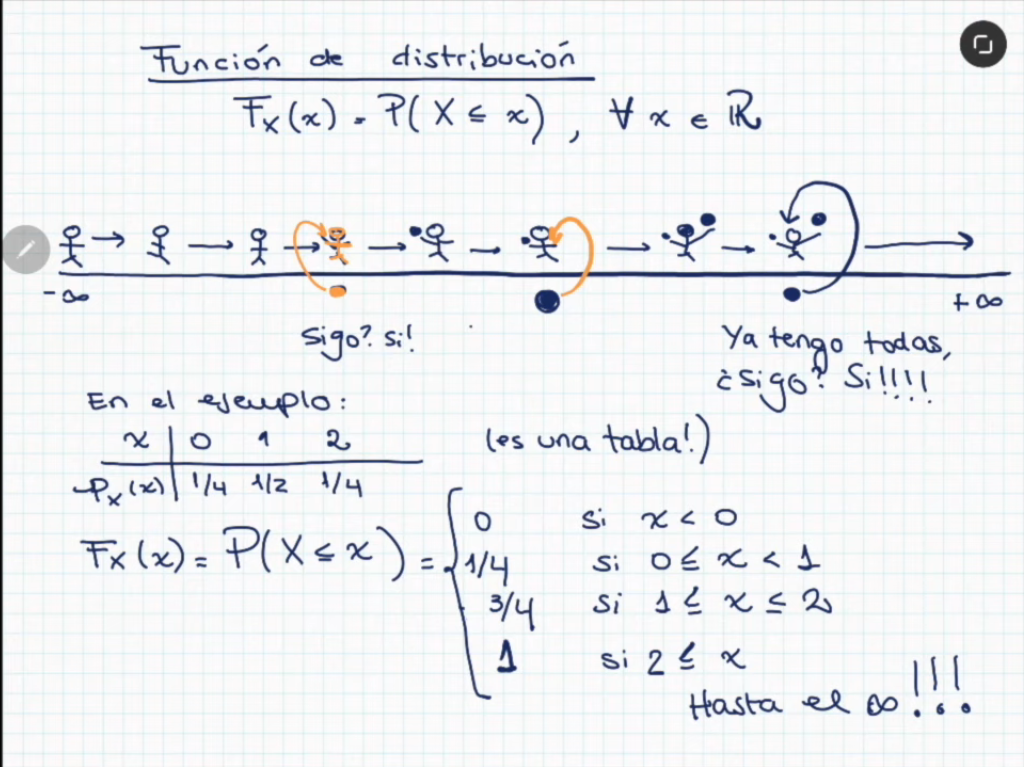 Función de distribución
Fx(x) = P(X ≤ x), ∀ x ∈ ℝ
-∞ +∞
Sigo? si!
Ya tengo todas,
¿Sigo? Si!!!!
En el ejemplo:
x | 0 1 2 (es una tabla!)
Px(x) | 1/4 1/2 1/4
Fx(x) = P(X ≤ x) = {
0 si x < 0
1/4 si 0 ≤ x < 1
3/4 si 1 ≤ x ≤ 2
1 si 2 ≤ x
Hasta el ∞ !!!